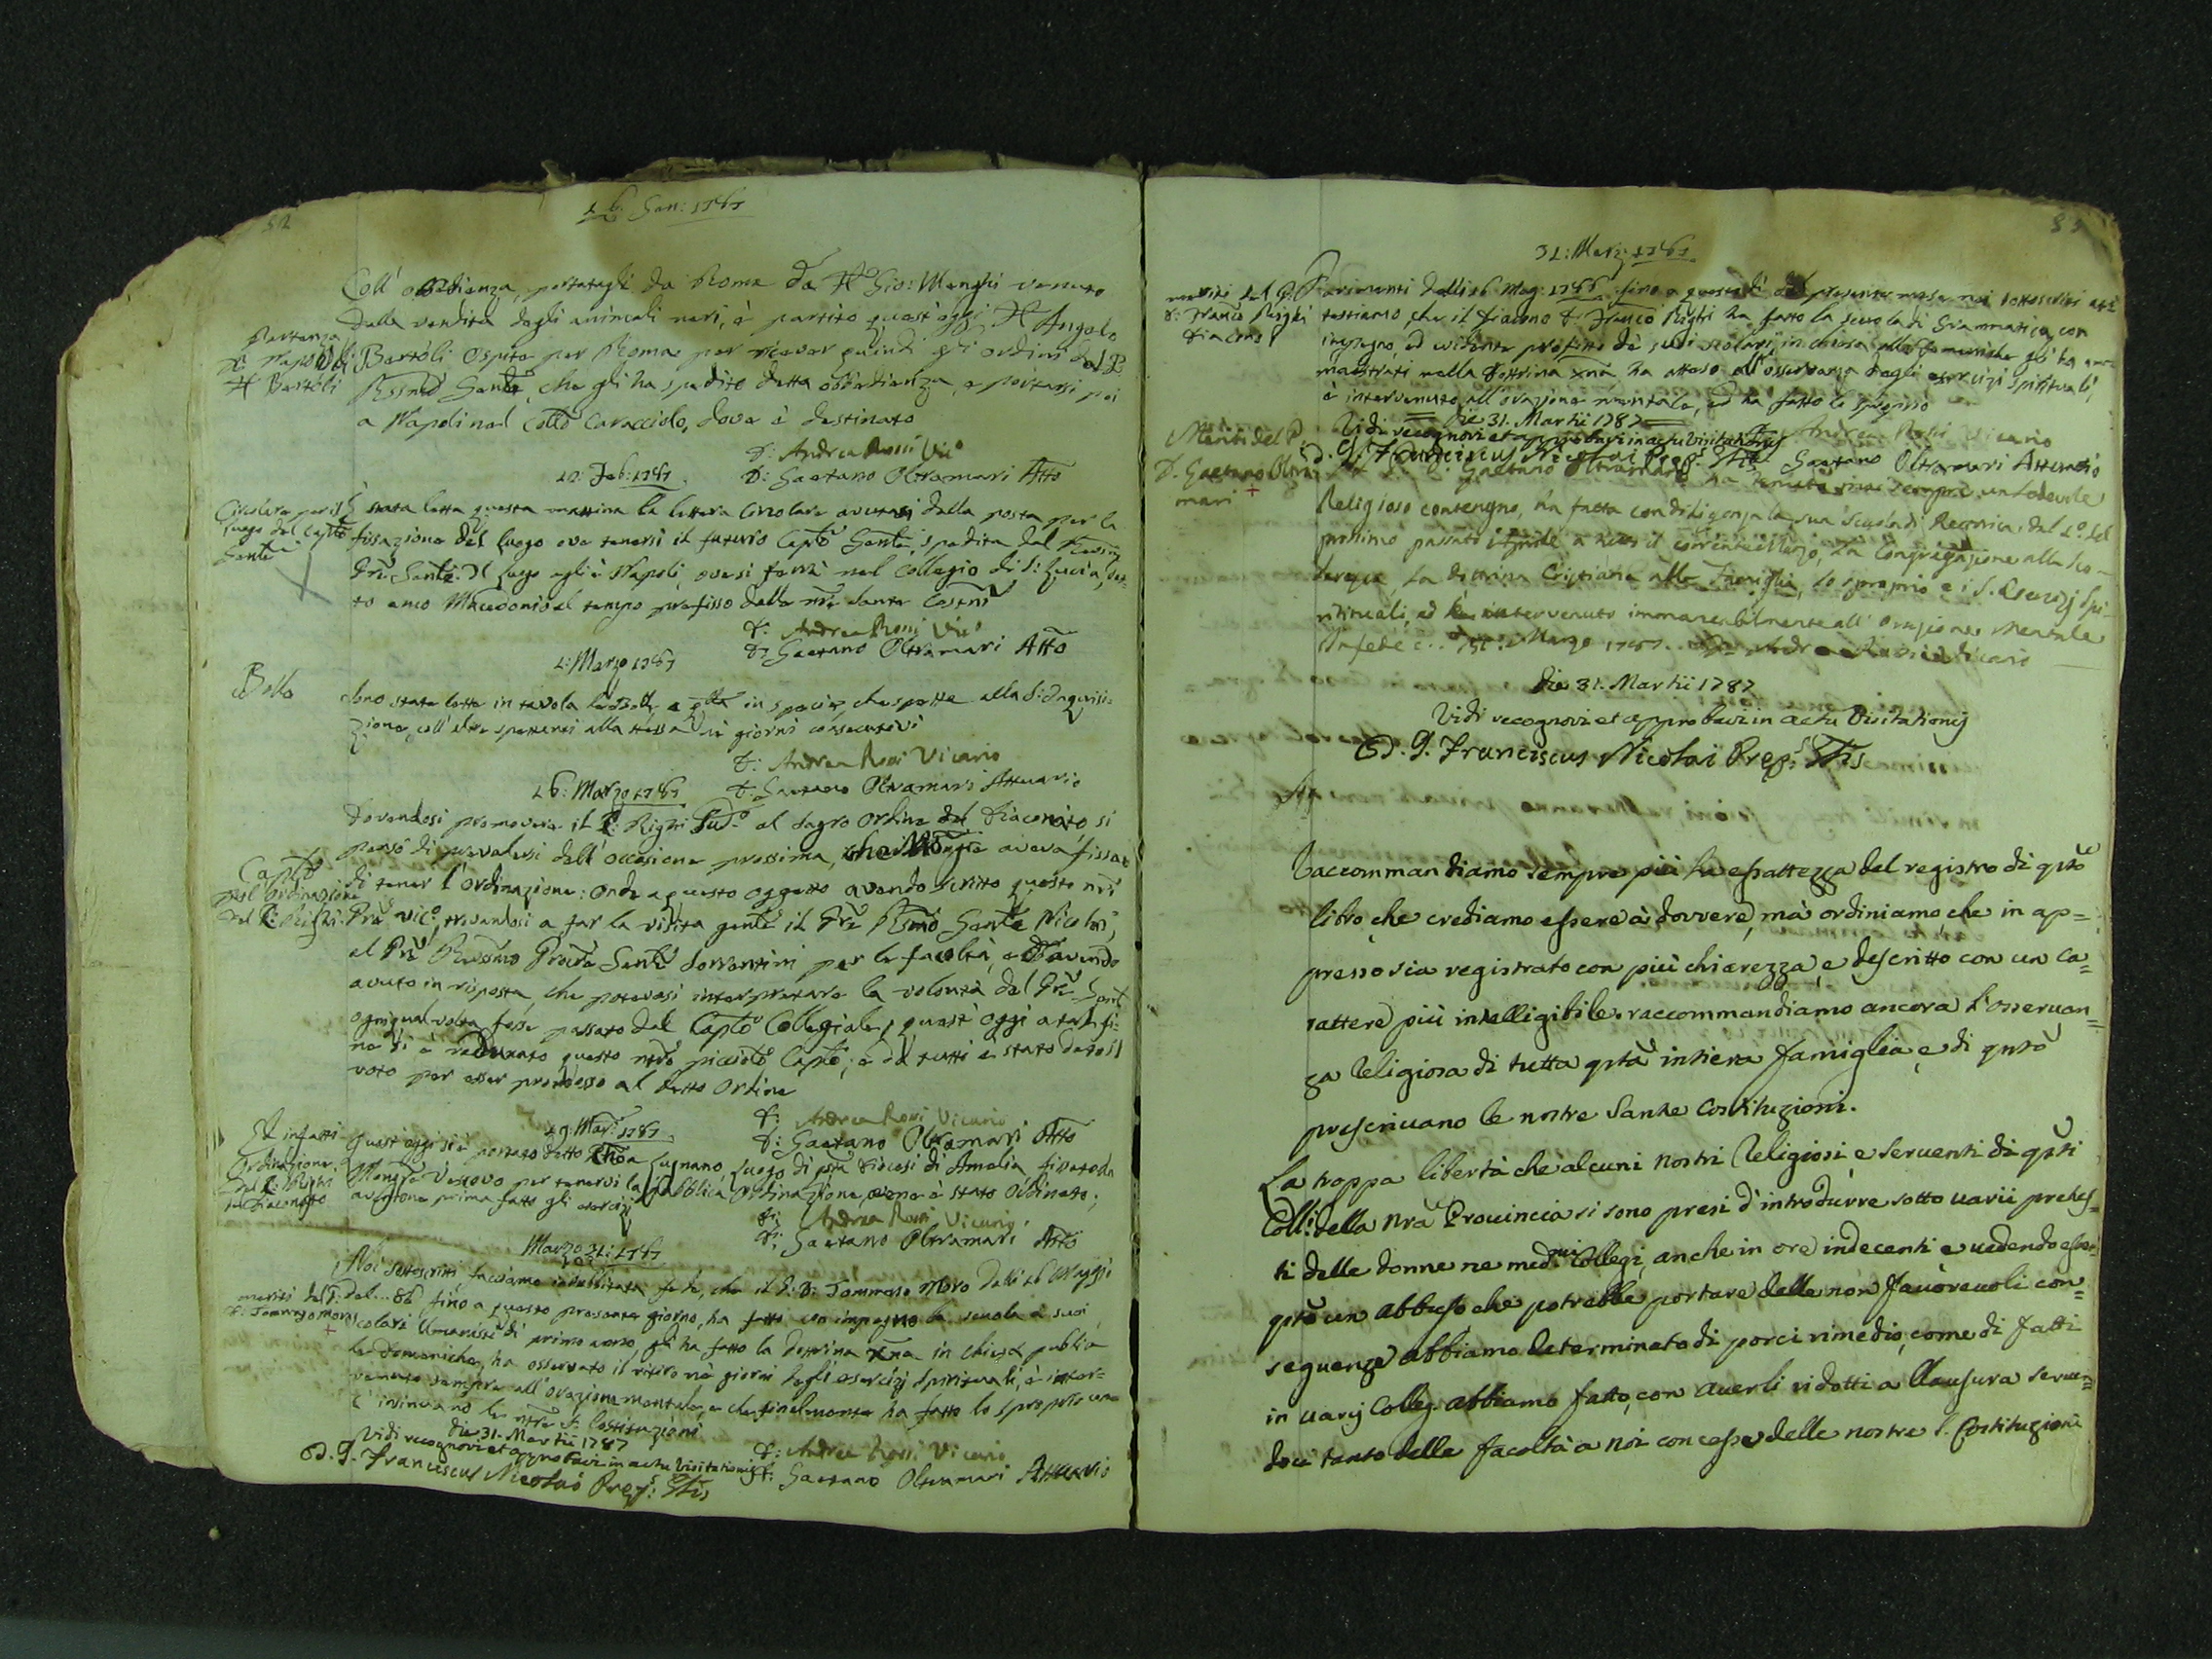 52
16. Gen: 1787
Coll' obbedienza, portatagli da Roma da Gio: Menghi venuto
dalla vendita degli animali neri, è partito quest'oggi Angelo
Partenza
Bartoli Ospite per Roma per ricever quindi gli ordini del P.
Bartoli
che gli ha spedito detta obbedienza, e portarsi poi
a Napoli nel Collo Caracciolo, dove è destinato
D: Andrea Rossi Vic.o
D: Gaetano Oltramari Atto
Feb: 1787
È stata letta questa mattina la lettera Circolare avutasi dalla posta per la
luogo del Capto
fissazione del luogo ove tenersi il futuro Capto Genle, spedita dal
Gnle. Il luogo egli è Napoli, ove si farà nel Collegio di S: Lucia, det-
to anco Macedonio al tempo prefisso dalle nre Sante Costni
D: Andrea Rossi Vic.o
D: Gaetano Oltramari Atto
1: Marzo 1787
Bolla
Sono state lette in tavola le Bolle, e in specie che spetta alla S: Inquisi-
zione, coll' altre spettanti alla stessa ne' giorni consecutivi
D: Andrea Rossi Vicario
D: Gaetano Oltramari Attuario
16: Marzo 1787
Dovendosi promovere il P: Righi al Sagro Ordine del Diaconato, si
pensò di prevalersi dell' occasione prossima, che aveva fissat
Capto
di tener l'ordinazione: onde a questo oggetto avendo scritto questo nro
pell'Ordinazione
del P: Righi
Pre Vic.o, trovandosi a far la visita il Pre Rsmo Genle Nicolai,
al Pre Rsmo Genle Sorrentini per la facoltà, ed avendo
avuto in risposta, che potevasi interpretare la volontà del Pre Genl
ogni qual volta fosse passato dal Capto Collegiale, quest' oggi a tal fi-
ne si è radunato questo nro picciolo Capto; e da tutti è stato dato il
voto per esser promosso al detto Ordine
D: Andrea Rossi Vicario
Mar: 1787
D: Gaetano Oltramari Atto
Ed infatti
Quest' oggi si è portato detto a Lugnano luogo di qsta Diocesi di Amelia fissato da
Ordinazione
Monsre Vescovo per tenervi la pubblica Ordinazione, e ne è stato Ordinato;
del P: Righi
al Diaconato
avendone prima fatto gli esercizi
D: Andrea Rossi Vicario
D: Gaetano Oltramari Atto
Marzo 31: 1787
Noi sottoscritti facciamo indubitata fede, che il P: D: Tommaso Moro dalli 16 Maggio
meriti del P.
del...86 fino a questo presente giorno, ha fatto con impegno la scuola a' suoi
D: Tommaso Moro
scolari Umanisti di primo anno, ha fatto la dottrina xna in chiesa publica
le domeniche, ha osservato il ritiro ne' giorni degli esercizj spirituali, è inter-
venuto sempre all' orazione mentale, e che finalmente ha fatto lo sproprio come
c' insinuano le nre S. Costituzioni
die 31. Martii 1787
Vidi recognovi et approbavi in actu Visitationis
D: Andrea Rossi Vicario
D. G. Franciscus Nicolai Prep: Gtis
D: Gaetano Oltramari Attuario
53
31: Marz: 1787
meriti del P.
Parimenti dalli 16 Mag: 1786 fino a questo dì del presente mese noi sottoscritti at-
D: Franco Righi
testiamo, che il Diacono D: Franco Righi ha fatto la scuola di Grammatica, con
Diacono
impegno, ed evidente profitto de' suoi scolari, in chiesa alle domeniche gli ha am-
maestrati nella dottrina xna ha atteso all' osservanza degli esercizi spirituali,
è intervenuto all' orazione mentale, ed ha fatto lo sproprio
Die 31. Martii 1787
Vidi recognovi et approbavi in actu Visitationis
Andrea Rossi Vicario
D. G. Franciscus Nicolai Prep: Gtis
Gaetano Oltramari Attuario
Meriti del P.
D. Gaetano Oltra-
mari
D. Gaetano Oltramari ha tenuto sempre un lodevole
Religioso contengno, ha fatta con diligenza la sua Scuola di Retorica dal
prossimo passato Aprile a tutto il corrente Marzo, la Congregazione alla Sco-
laresca, la dottrina Cristiana alla Famiglia, lo sproprio e i S. Esercizj Spi-
rituali, ed è intervenuto immancabilmente all' Orazione Mentale
In fede Marzo 1787. Andrea Rossi Vicario
Die 31. Martii 1787
Vidi recognovi et approbavi in actu Visitationis
D. G. Franciscus Nicolai Prep: Gtis
Raccommandiamo sempre più la essattezza del registro di qsto
libro, che crediamo essere à dovvere, mà ordiniamo che in ap=
presso sia registrato con più chiarezza, e descritto con un ca=
rattere più intelligibile. raccommandiamo ancora l'osseruan=
za Religiosa di tutta qsta intiera famiglia, e di qsto
prescrivano le nostre Sante Costituzioni.
La troppa libertà che alcuni nostri Religiosi, e seruenti di qsti
Coll: della nra Prouincia si sono presi d'introdurre sotto uarii pretes=
ti delle donne ne med.mi Collegi, anche in ore indecenti e uedendo esser
qsto un abbuso che potrebbe portare delle non fauoreuoli con=
seguenze abbiamo determinato di porci rimedio, come di fatti
in uarij Colleg. abbiamo fatto, con auerli ridotti a Clausura seruen=
doci tanto delle facoltà a noi concesse delle nostre S. Costituzioni